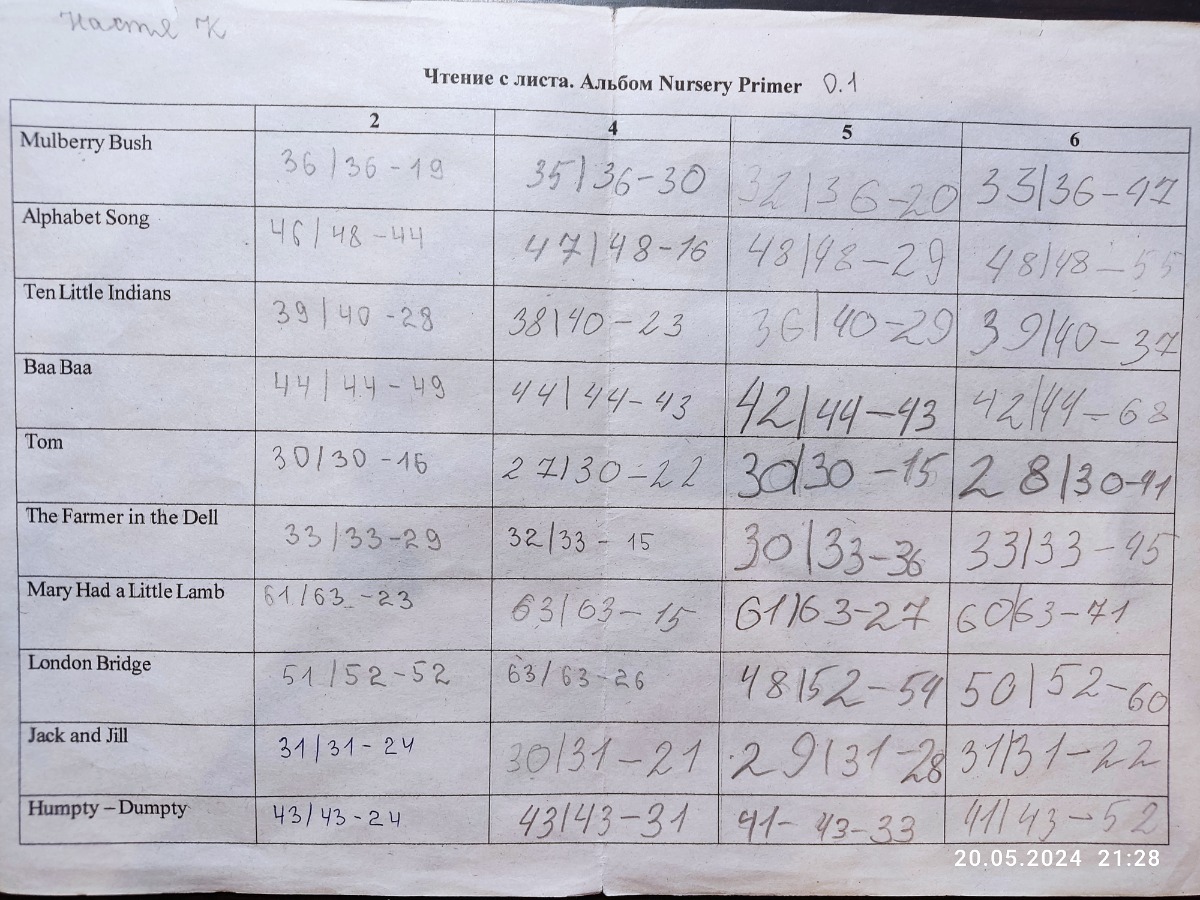 Настя К
Чтение с листа. Альбом Nursery Primer 0.1
2 4 5 6
Mulberry Bush 36/36-19 35/36-30 32/36-20 33/36-47
Alphabet Song 46/48-44 47/48-16 48/48-29 48/48-55
Ten Little Indians 39/40-28 38/40-23 36/40-29 39/40-37
Baa Baa 44/44-49 44/44-43 42/44-43 42/44-68
Tom 30/30-16 27/30-22 30/30-15 28/30-41
The Farmer in the Dell 33/33-29 32/33-15 30/33-36 33/33-45
Mary Had a Little Lamb 61/63-23 63/63-15 61/63-27 60/63-71
London Bridge 51/52-52 63/63-26 48/52-54 50/52-60
Jack and Jill 31/31-24 30/31-21 29/31-28 31/31-22
Humpty – Dumpty 43/43-24 43/43-31 41-43-33 41/43-52
20.05.2024 21:28